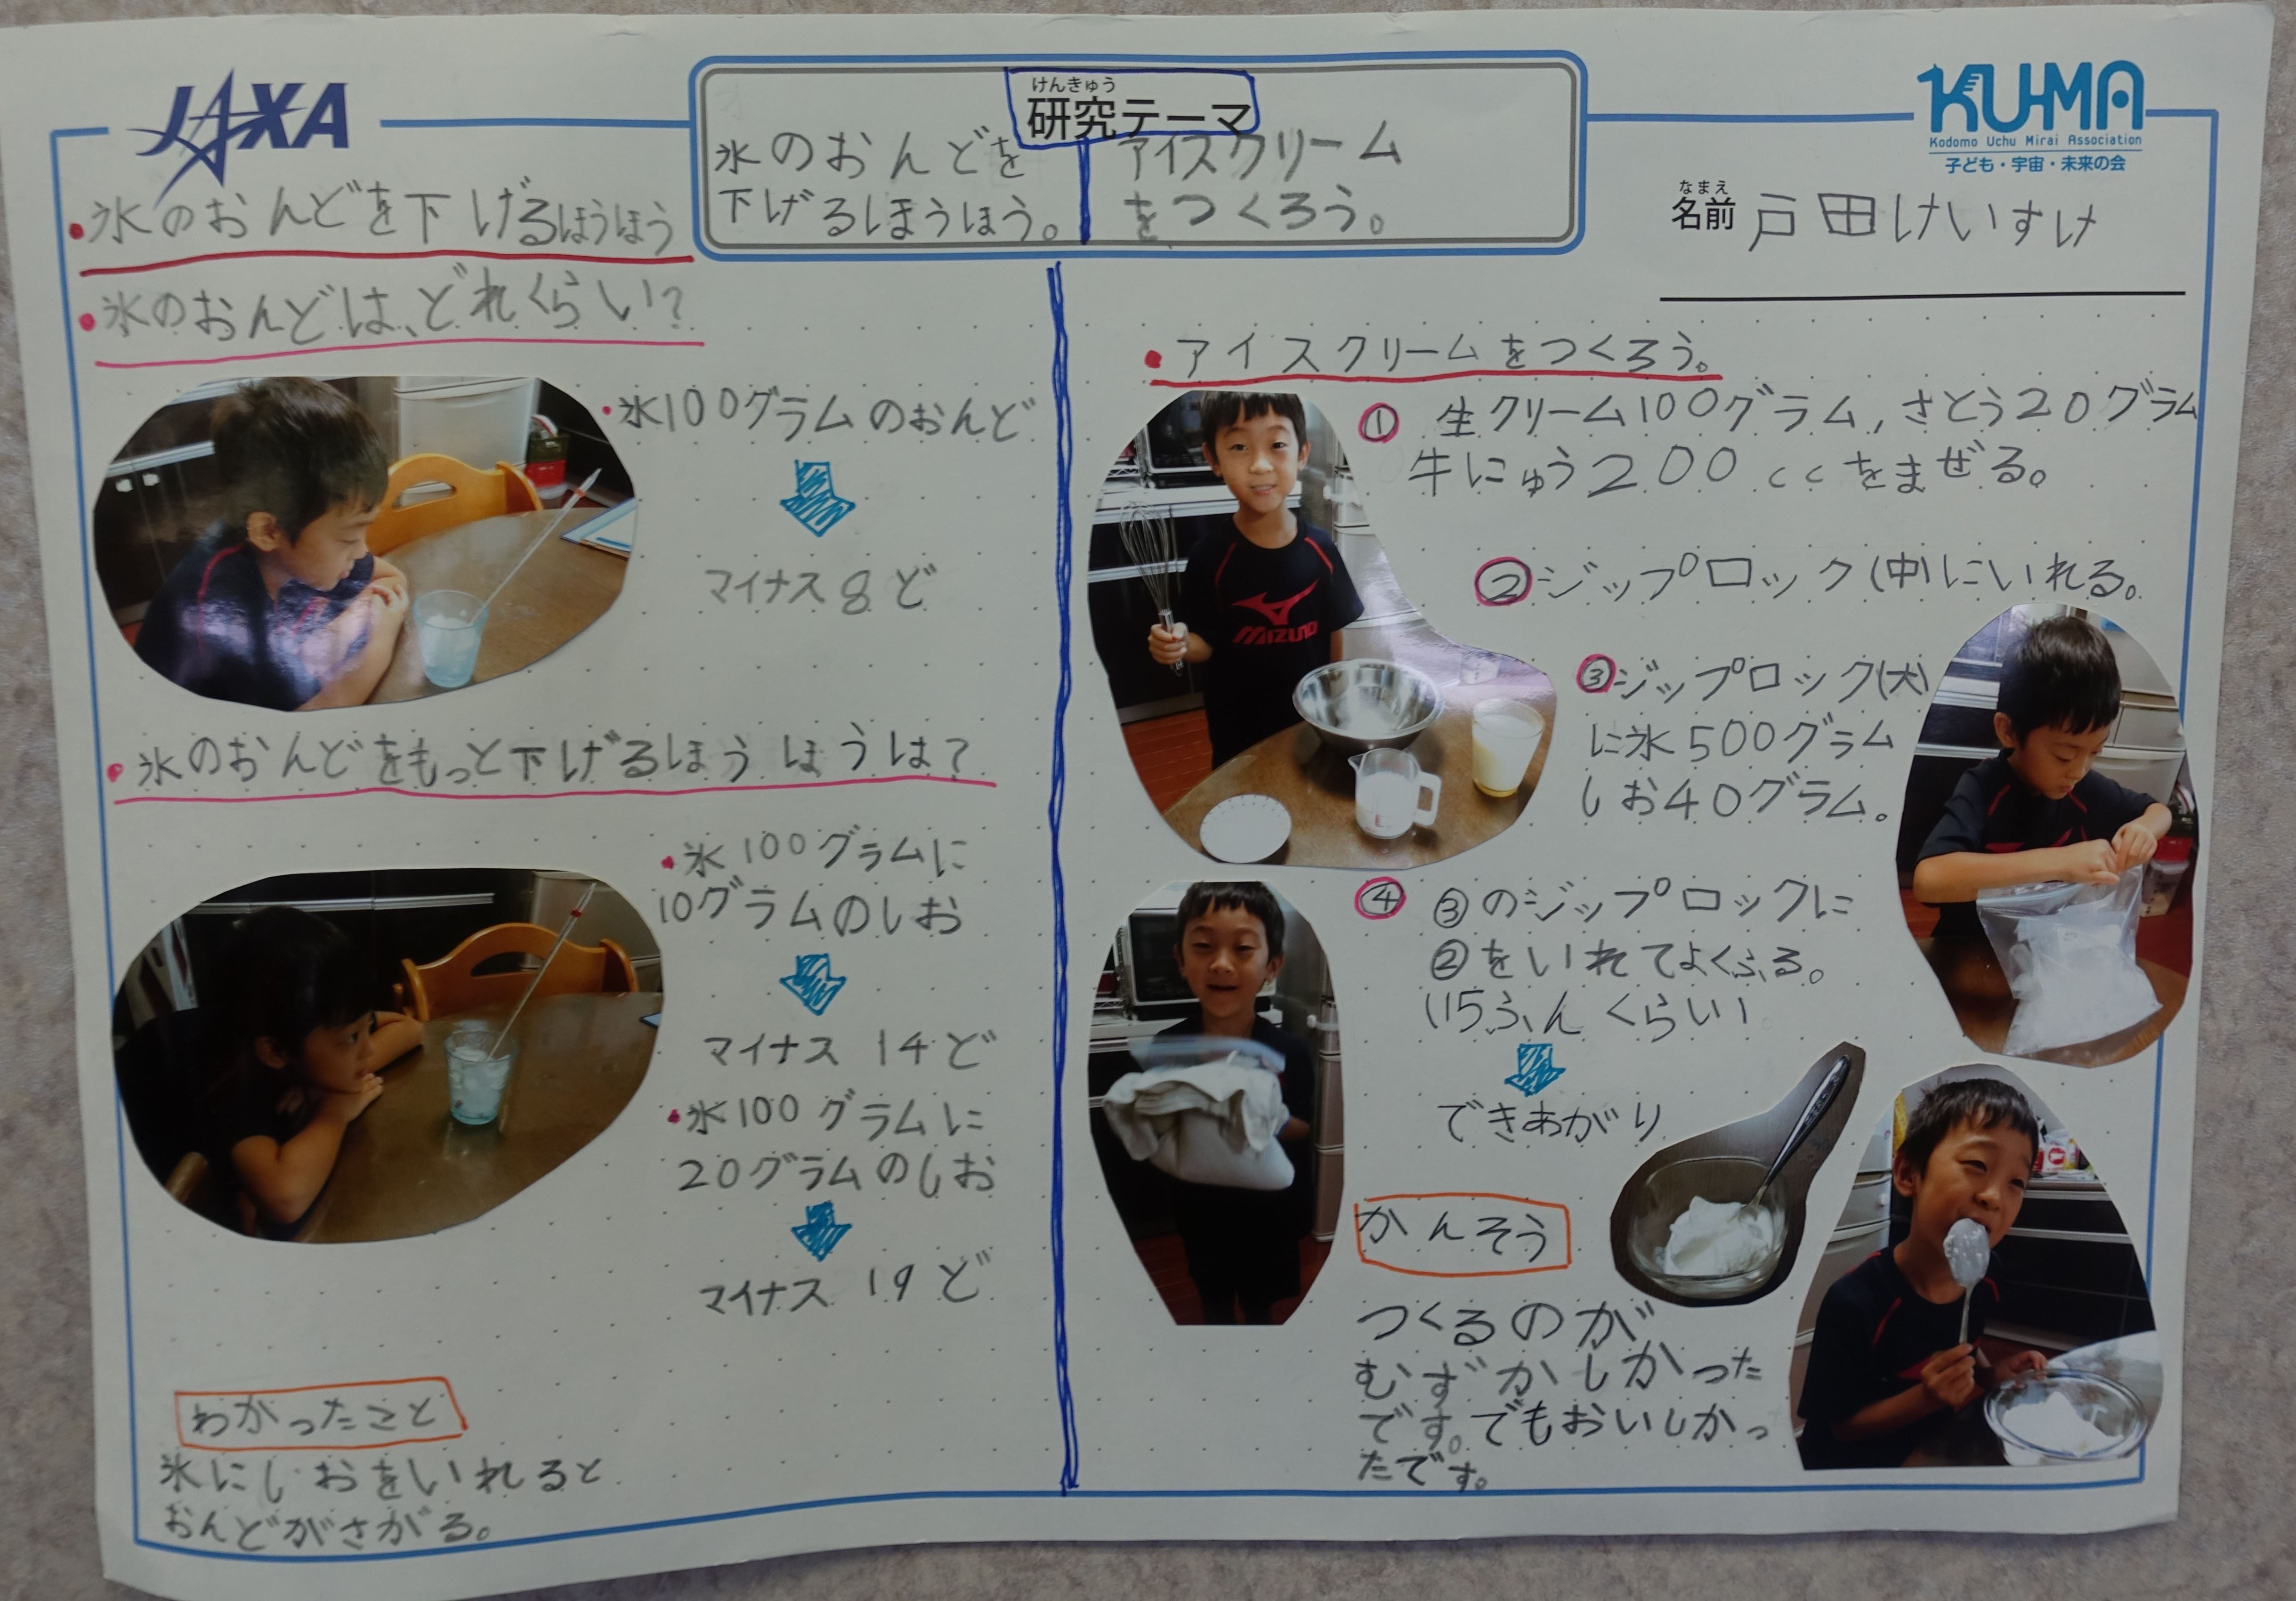 JAXA
けんきゅう
研究テーマ
氷のおんどを
下げるほうほう。
アイスクリーム
をつくろう。
KU-MA
Kodomo Uchu Mirai Association
子ども・宇宙・未来の会
なまえ
名前 戸田けいすけ
・氷のおんどを下げるほうほう
・氷のおんどは、どれくらい?
・氷100グラムのおんど
マイナス8ど
・氷のおんどをもっと下げるほうほうは?
・氷100グラムに
10グラムのしお
マイナス14ど
・氷100グラムに
20グラムのしお
マイナス19ど
わかったこと
氷にしおをいれると
おんどがさがる。
・アイスクリームをつくろう。
① 生クリーム100グラム,さとう20グラム
牛にゅう200ccをまぜる。
②ジップロック(中)にいれる。
③ジップロック(大)
に氷500グラム
しお40グラム。
④ ③のジップロックに
②をいれてよくふる。
(15ふんくらい)
できあがり
かんそう
つくるのが
むずかしかった
です。でもおいしかっ
たです。
MIZUNO